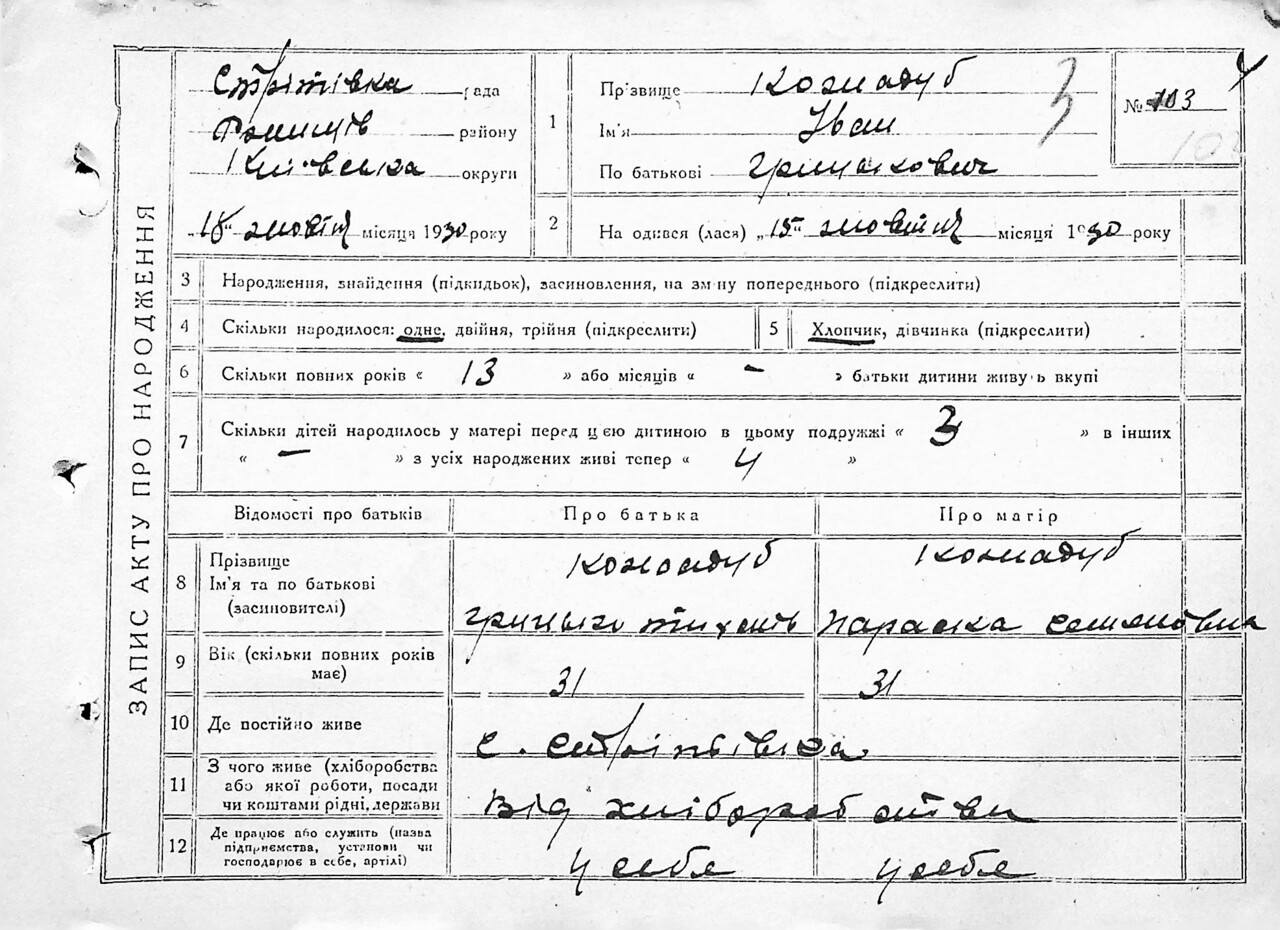 ЗАПИС АКТУ ПРО НАРОДЖЕННЯ
Стрітівка рада
району
Київська округи
„18" жовтня місяця 1930 року
1
Прізвище Кожадуб
Ім'я Іван
По батькові Грицькович
3
№ 103
2
На одився (лася) „15" жовтня місяця 1930 року
3 Народження, знайдення (підкидьок), засиновлення, на зміну попереднього (підкреслити)
4 Скільки народилося: одне, двійня, трійня (підкреслити)
5 Хлопчик, дівчинка (підкреслити)
6 Скільки повних років « 13 » або місяців « - » батьки дитини живуть вкупі
7 Скільки дітей народилось у матері перед цією дитиною в цьому подружжі « 3 » в інших
« - » з усіх народжених живі тепер « 4 »
Відомості про батьків Про батька Про матір
8 Прізвище
Ім'я та по батькові
(засиновителі)
Кожадуб
Грицько
Кожадуб
Параска Семенівна
9 Вік (скільки повних років
має)
31 31
10 Де постійно живе
с. Стрітівка
11 З чого живе (хліборобства
або якої роботи, посади
чи коштами рідні, держави
Від хліборобства
12 Де працює або служить (назва
підприємства, установи чи
господарює в себе, артілі)
у себе у себе